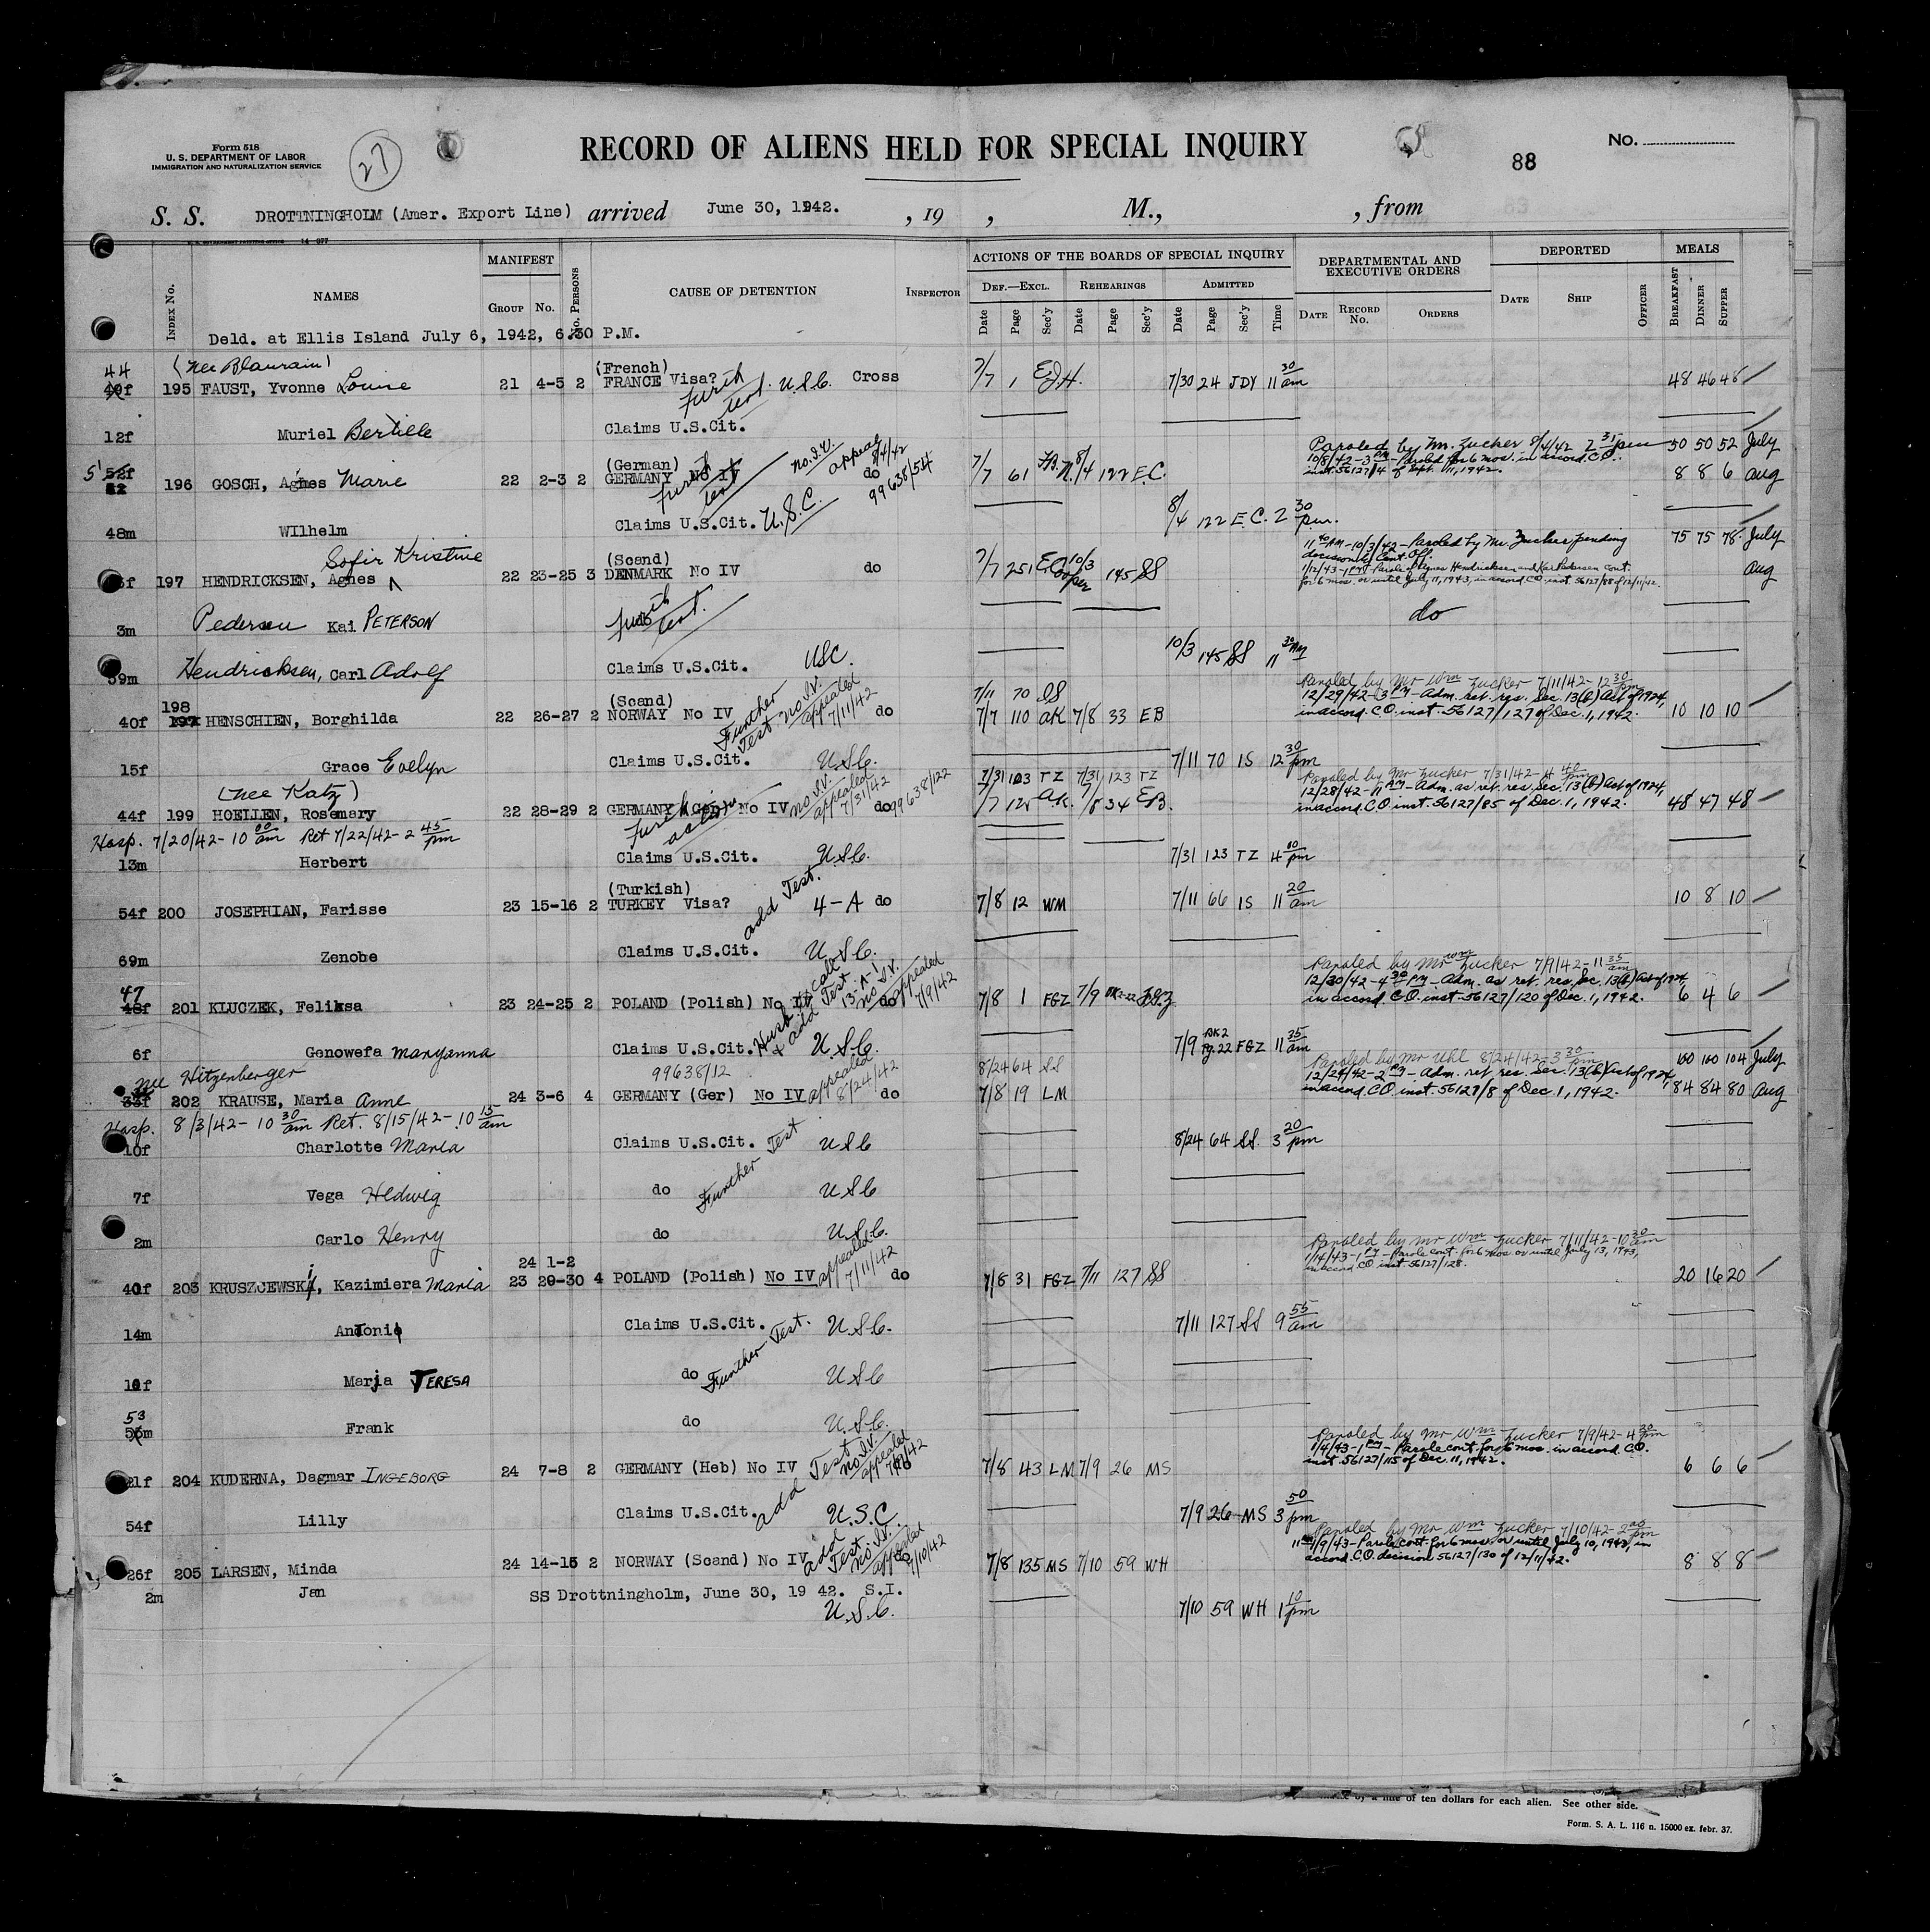 Form 518
U. S. DEPARTMENT OF LABOR
IMMIGRATION AND NATURALIZATION SERVICE
27
RECORD OF ALIENS HELD FOR SPECIAL INQUIRY
88
No.
S. S. DROTTNINGHOLM (Amer. Export Line) arrived June 30, 1942. , 19 , M., , from
INDEX No. NAMES MANIFEST GROUP No. No. PERSONS CAUSE OF DETENTION INSPECTOR
ACTIONS OF THE BOARDS OF SPECIAL INQUIRY DEPARTMENTAL AND EXECUTIVE ORDERS DEPORTED MEALS
DEF.—EXCL. REHEARINGS ADMITTED
Date Page Sec'y Date Page Sec'y Date Page Sec'y Time DATE RECORD No. ORDERS DATE SHIP OFFICER BREAKFAST DINNER SUPPER
Deld. at Ellis Island July 6, 1942, 6.30 P.M.
(nee Blaurain) (French)
44 195 FAUST, Yvonne Louise 21 4-5 2 FRANCE Visa? furth test. U.S.C. Cross 7/7 1 EJH. 7/30 24 JDY 11 30 am 48 46 48
12f Muriel Bertille Claims U.S.Cit.
(German) no I.V. appeal 8/4/42
Paroled by Mr. Zucker 8/4/42 2 31 pm 50 50 52 July
10/8/42-3 PM-Paroled for 6 mos. in accord. C.O.
inst. 56127/4 of Sept. 11, 1942. 8 8 6 aug
51 196 GOSCH, Agnes Marie 22 2-3 2 GERMANY No IV furth test do 99638/54 7/7 61 8/4 122 E.C.
48m WIlhelm Claims U.S.Cit. U.S.C. 8/4 122 E.C. 2 30 pm.
Sofir Kristine (Scand)
11 40 AM-10/3/42-Paroled by Mr. Zucker pending 75 75 78 July
decision by Cent. Off.
1/12/43-1 PM-Parole of Agnes Hendricksen and Kai Pedersen cont.
for 6 mos. or until July 11, 1943, in accord. C.O. inst. 56127/88 of 12/11/42. aug
197 HENDRICKSEN, Agnes 22 23-25 3 DENMARK No IV do 7/7 251 E.Cooper 10/3 145 SS
3m Pedersen Kai PETERSON furth test. do
39m Hendricksen, Carl Adolf Claims U.S.Cit. USC. 10/3 145 SS 11 30 AM
Paroled by Mr Wm Zucker 7/11/42-12 30 pm
12/29/42-3 PM-Adm. ret. res. Sec. 13(b) Act of 1924,
in accord. C.O. inst. 56127/127 of Dec. 1, 1942. 10 10 10
198 (Scand) Further Test no I.V. appealed 7/11/42 7/11 70 IS
40f 197 HENSCHIEN, Borghilda 22 26-27 2 NORWAY No IV do 7/7 110 aK 7/8 33 EB
15f Grace Evelyn Claims U.S.Cit. U.S.C. 7/11 70 IS 12 30 pm
(nee Katz) no I.V. appealed 7/31/42 99638/122 7/31 123 TZ 7/31 123 TZ
Paroled by Mr Zucker 7/31/42-4 40 pm
12/28/42-11 AM-Adm. as ret. res. Sec. 13(b) Act of 1924,
in accord. C.O. inst. 56127/85 of Dec. 1, 1942. 48 47 48
44f 199 HOELLEN, Rosemary 22 28-29 2 GERMANY (Ger) No IV do 7/7 125 aK. 7/8 34 EB.
Hosp. 7/20/42-10 00 am Ret 7/22/42-2 45 pm
13m Herbert Claims U.S.Cit. U.S.C. 7/31 123 TZ 4 00 pm
(Turkish)
54f 200 JOSEPHIAN, Farisse 23 15-16 2 TURKEY Visa? add Test. 4-A do 7/8 12 WM 7/11 66 IS 11 20 am 10 8 10
69m Zenobe Claims U.S.Cit. U.S.C.
Paroled by Mr Wm Zucker 7/9/42-11 35 am
12/30/42-4 30 PM-Adm. as ret. res. Sec. 13(b) Act of 1924,
in accord. C.O. inst. 56127/120 of Dec. 1, 1942. 6 4 6
47 201 KLUCZEK, Feliksa 23 24-25 2 POLAND (Polish) No IV 13-A-1 no I.V. do appealed 7/9/42 7/8 1 FGZ 7/9 FGZ
6f Genowefa Maryanna Claims U.S.Cit. add Test U.S.C. 7/9 BK2 Pg.22 FGZ 11 35 am
Paroled by Mr Uhl 8/24/42-3 30 pm 100 100 104 July
12/29/42-2 PM-Adm. ret. res. Sec. 13(b) Act of 1924,
in accord. C.O. inst. 56127/8 of Dec 1, 1942. 84 84 80 aug
nee Hitzenberger 99638/12 appealed 8/24/42 8/24 64 SS
33f 202 KRAUSE, Maria Anne 24 3-6 4 GERMANY (Ger) No IV do 7/8 19 LM
Hosp. 8/3/42-10 30 am Ret. 8/15/42-10 15 am
10f Charlotte Maria Claims U.S.Cit. U S C 8/24 64 SS. 3 20 pm
7f Vega Hedwig do Further Test U S C
2m Carlo Henry do U.S.C.
Paroled by Mr Wm Zucker 7/11/42-10 30 am
1/4/43-1 PM-Parole cont. for 6 mos. or until July 13, 1943,
in accord. C.O. inst. 56127/128.
24 1-2 appealed 7/11/42
40f 203 KRUSZCEWSKI, Kazimiera Maria 23 29-30 4 POLAND (Polish) No IV do 7/8 31 FGZ 7/11 127 SS 20 16 20
14m Antoni Claims U.S.Cit. U.S.C. 7/11 127 SS 9 55 am
Maria TERESA do Further Test. U S C
53 Frank do U.S.C.
Paroled by Mr Wm Zucker 7/9/42-4 30 pm
1/4/43-1 PM-Parole cont. for 6 mos. in accord. C.O.
inst. 56127/115 of Dec. 11, 1942. 6 6 6
21f 204 KUDERNA, Dagmar INGEBORG 24 7-8 2 GERMANY (Heb) No IV add Test no I.V. appealed 7/9/42 do 7/8 43 LM 7/9 26 MS
54f Lilly Claims U.S.Cit. U.S.C 7/9 26 MS 3 50 pm
Paroled by Mr Wm Zucker 7/10/42-2 00 pm
11 AM 1/9/43-Parole cont. for 6 mos. or until July 10, 1943, in
accord. C.O. decision 56127/130 of 12/11/42. 8 8 8
26f 205 LARSEN, Minda 24 14-15 2 NORWAY (Scand) No IV add Test. no I.V. appealed 7/10/42 do 7/8 135 MS 7/10 59 WH
2m Jan SS Drottningholm, June 30, 19 42. S.I.
U.S.C. 7/10 59 WH 1 10 pm
of ten dollars for each alien. See other side.
Form. S. A. L. 116 n. 15000 ex. febr. 37.